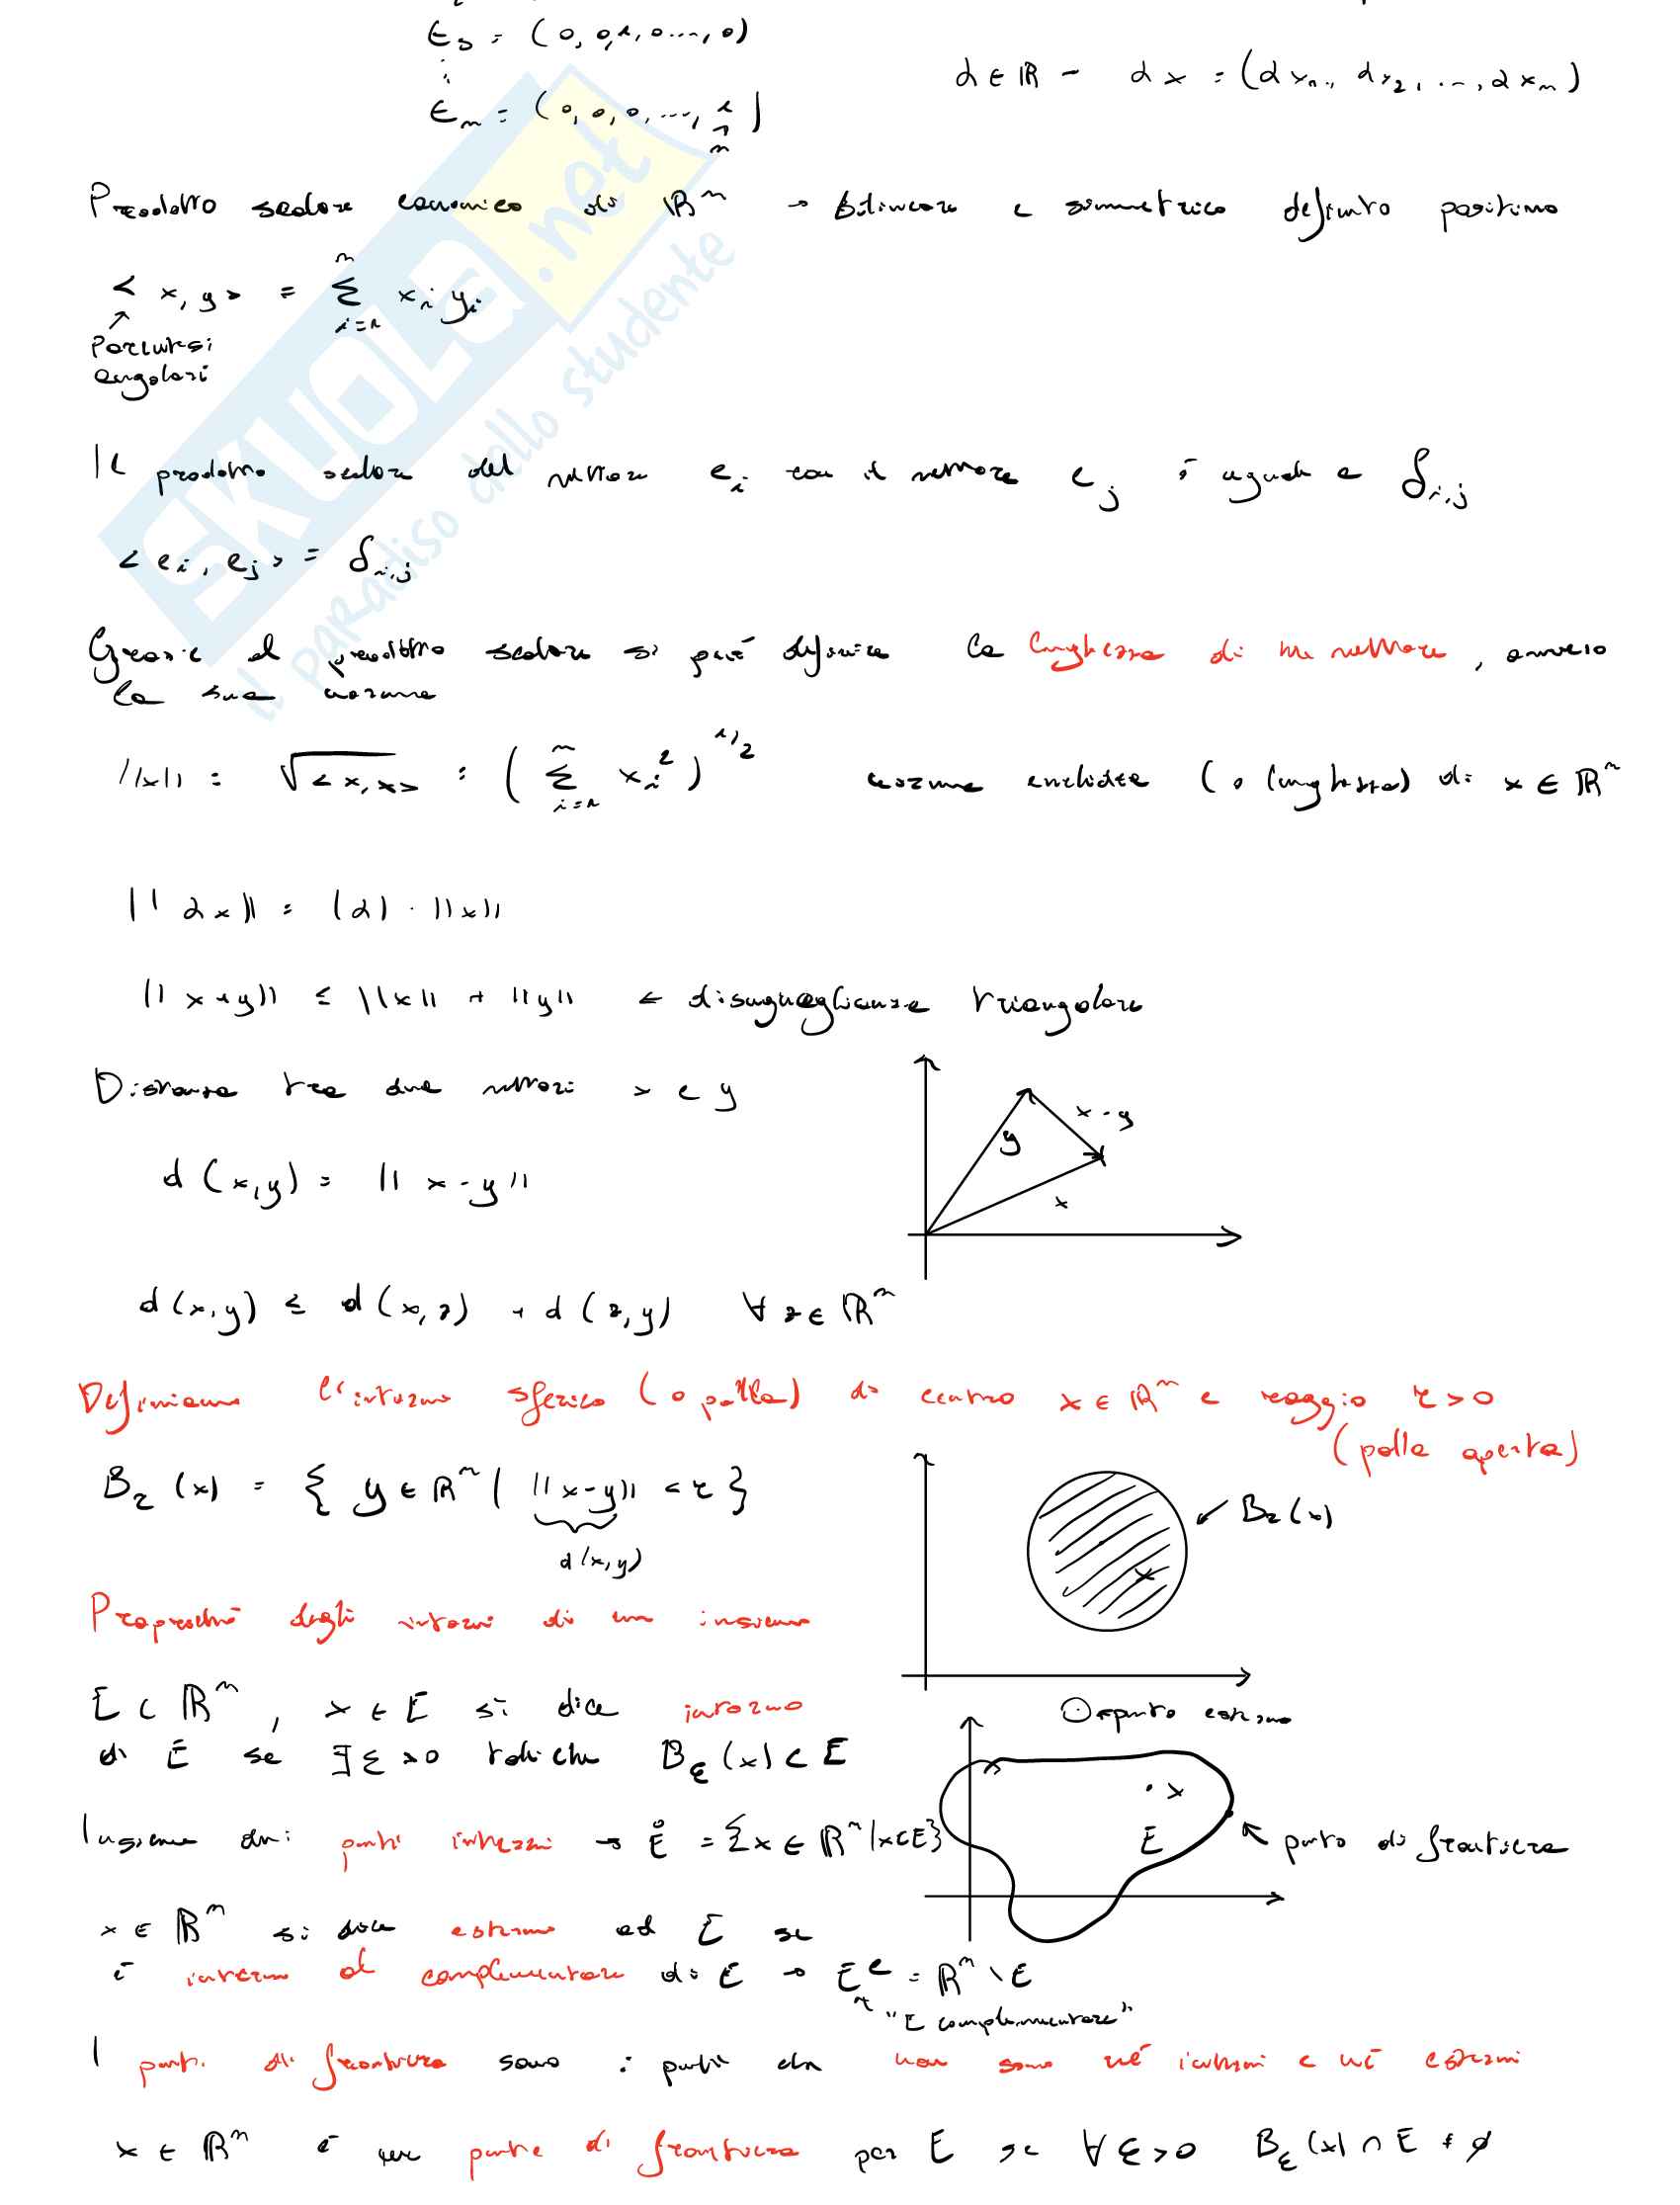 E₃ = (0, 0, 1, 0 ..., 0)
⋮
Eₙ = (0, 0, 0, ..., 1)
↑
n
α ∈ ℝ - αx = (αx₁, αx₂, ..., αxₙ)
Prodotto scalare canonico di ℝⁿ → bilineare e simmetrico definito positivo
<x, y> = Σⁿᵢ₌₁ xᵢ yᵢ
↑
Parentesi
angolari
Il prodotto scalare del vettore eᵢ con il vettore eⱼ è uguale a δᵢ,ⱼ
<eᵢ, eⱼ> = δᵢ,ⱼ
Grazie al prodotto scalare si può definire la lunghezza di un vettore, ovvero
la sua norma
||x|| = √<x, x> = (Σⁿᵢ₌₁ xᵢ²)^1/2 norma euclidea (o lunghezza) di x ∈ ℝⁿ
||αx|| = |α| · ||x||
||x+y|| ≤ ||x|| + ||y|| ← disuguaglianza triangolare
Distanza tra due vettori x e y
x-y
y
x
d(x,y) = ||x-y||
d(x,y) ≤ d(x,z) + d(z,y) ∀ z ∈ ℝⁿ
Definiamo l'intorno sferico (o palla) di centro x ∈ ℝⁿ e raggio r > 0
(palla aperta)
Bᵣ(x) = { y ∈ ℝⁿ | ||x-y|| < r }
d(x,y)
Bᵣ(x)
x
Proprietà degli intorni di un insieme
E ⊂ ℝⁿ, x ∈ E si dice interno
di E se ∃ ε > 0 tale che B_ε(x) ⊂ E
punto esterno
x
E
punto di frontiera
Insieme dei punti interni → E̊ = {x ∈ ℝⁿ | x ∈ E}
x ∈ ℝⁿ si dice esterno ad E se
è interno al complementare di E → Eᶜ = ℝⁿ \ E
"E complementare"
I punti di frontiera sono i punti che non sono né interni e né esterni
x ∈ ℝⁿ è un punto di frontiera per E se ∀ ε > 0 B_ε(x) ∩ E ≠ ∅
SKUOLA.net
il paradiso dello studente